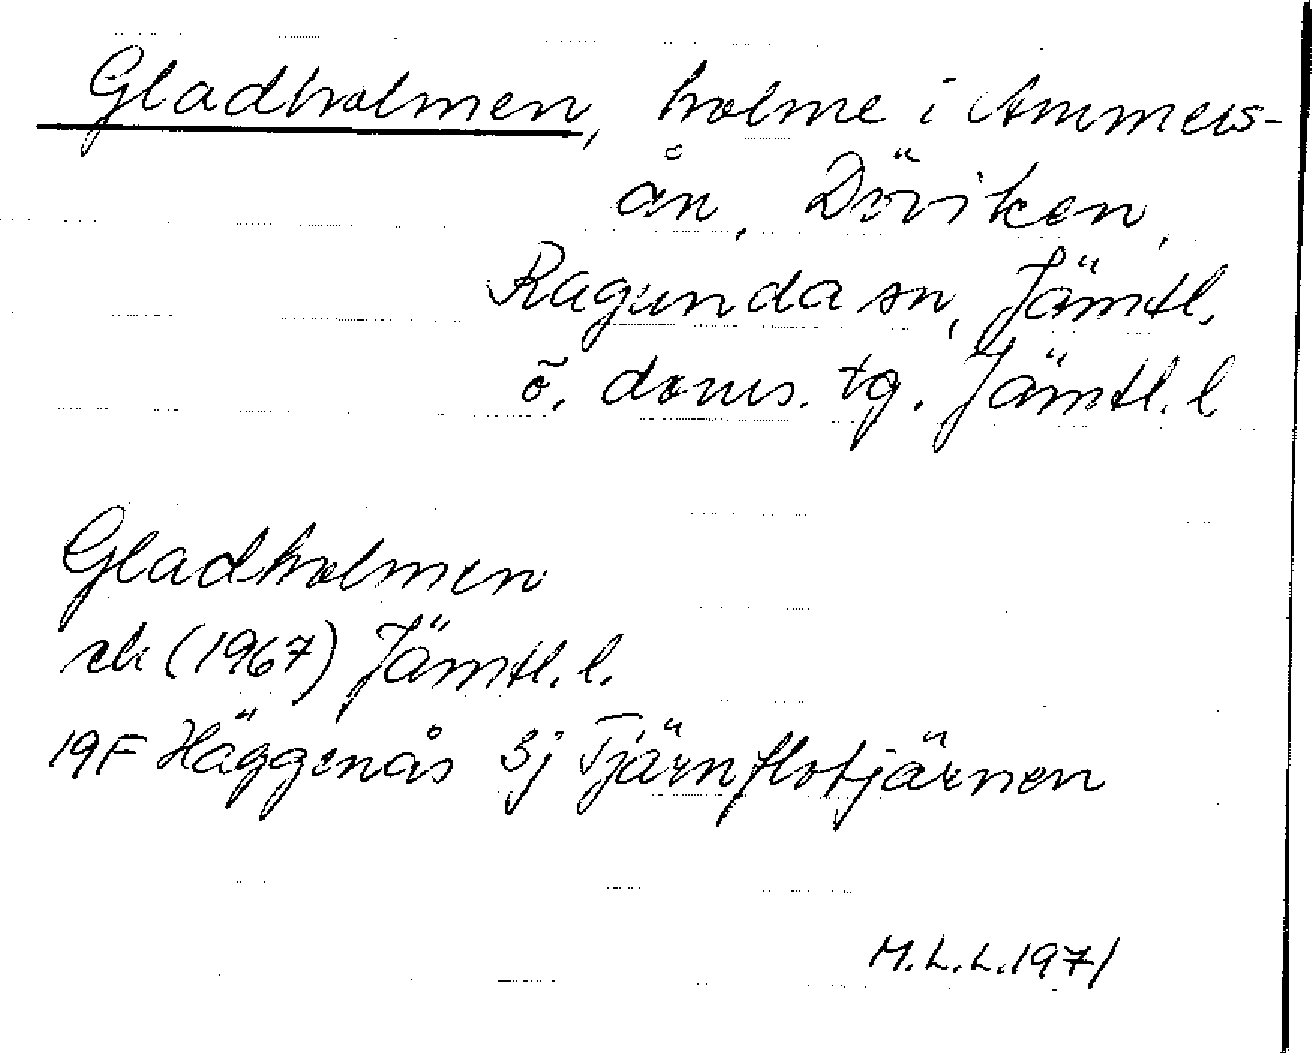 Gladholmen, holme i Ammers-
ån, Döviken,
Ragunda sn, Jämtl.
ö. doms. tg. Jämtl. l
Gladholmen
ek (1967) Jämtl. l.
19F Häggenås 3j Tjärnflotjärnen
M.L.L.1971